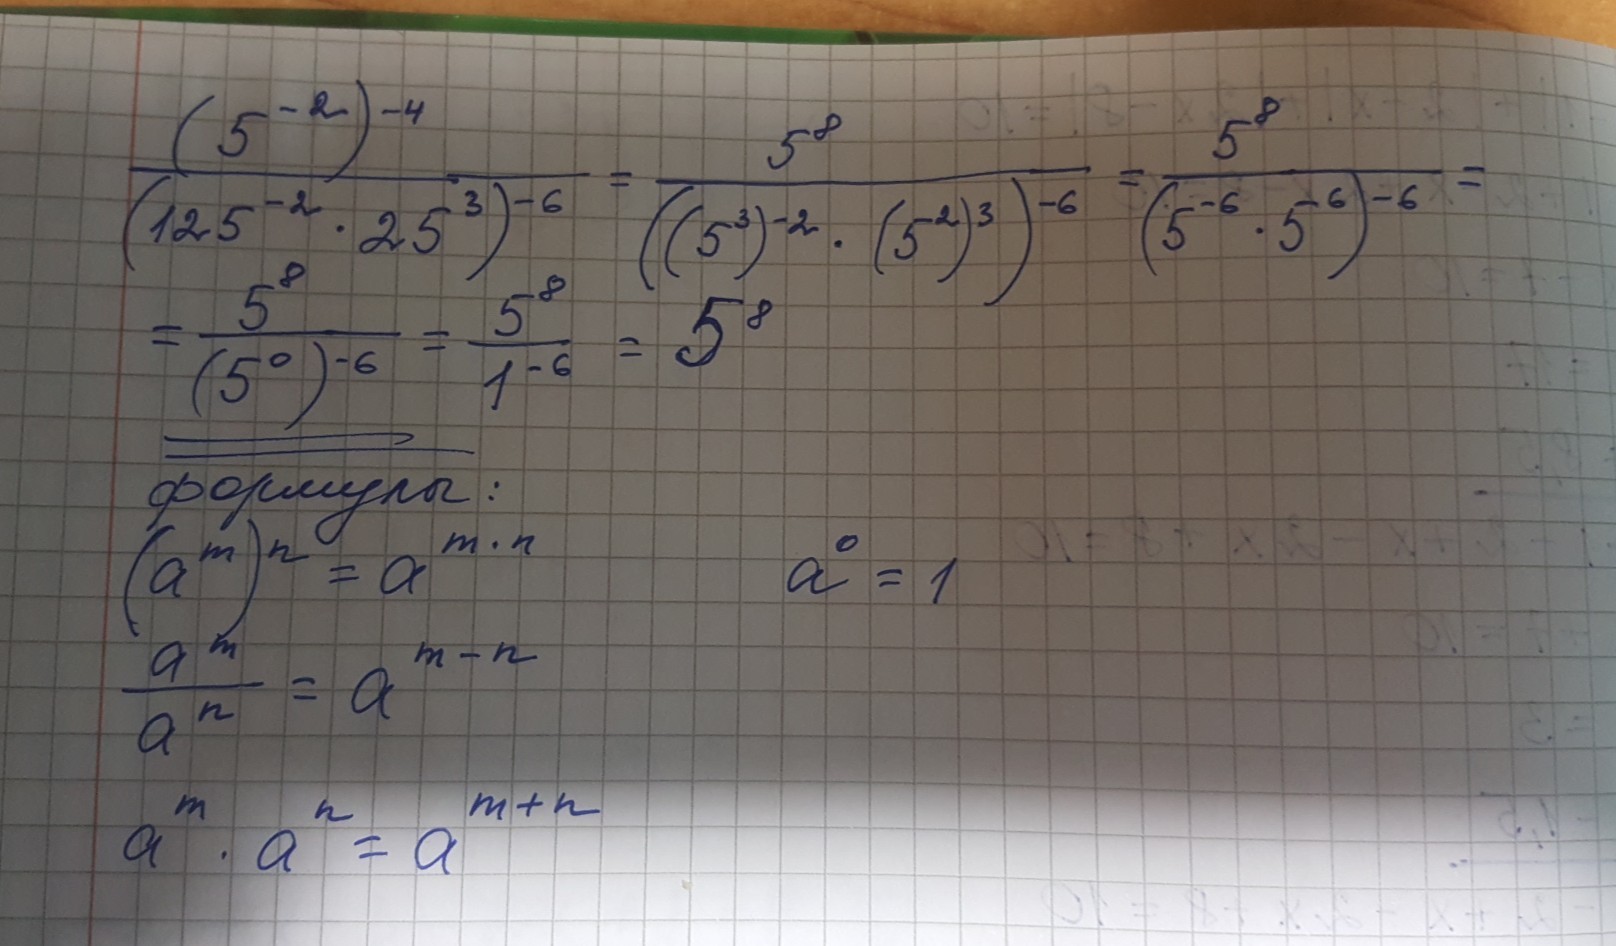 (5^-2)^-4 / (125^-2 · 25^3)^-6 = 5^8 / ((5^3)^-2 · (5^2)^3)^-6 = 5^8 / (5^-6 · 5^6)^-6 =
= 5^8 / (5^0)^-6 = 5^8 / 1^-6 = 5^8
формулы:
(a^m)^n = a^m·n a^0 = 1
a^m / a^n = a^m-n
a^m · a^n = a^m+n